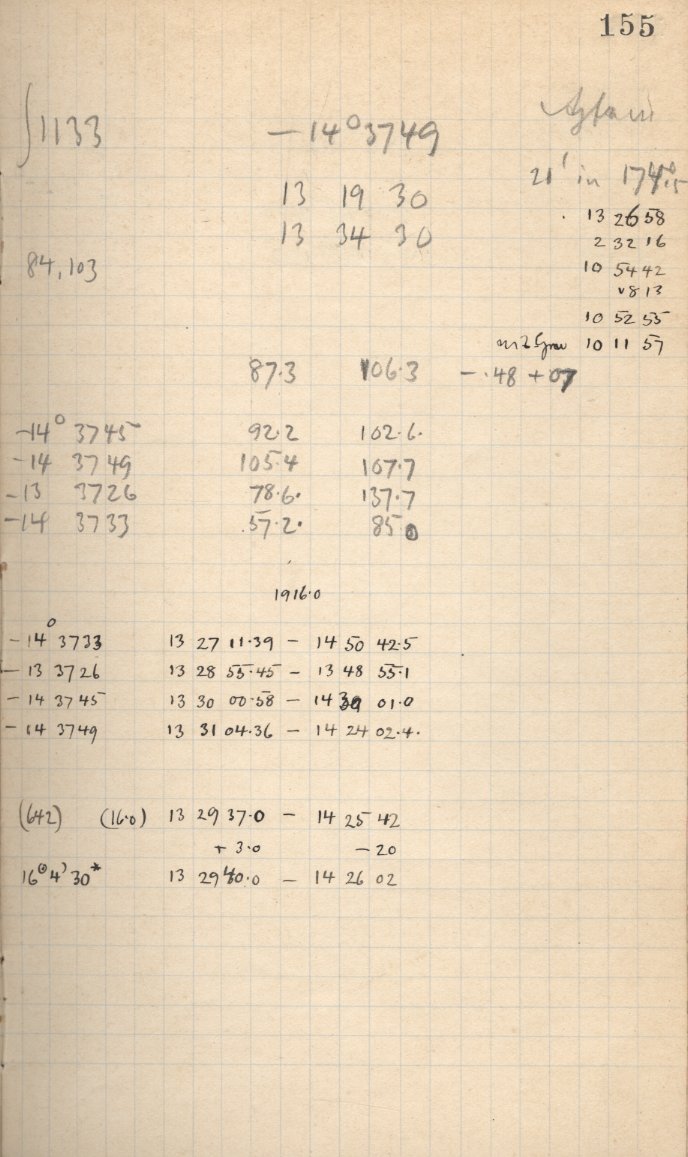 155
∫1133 −14° 3749
21' in 174
13 19 30
13 26 58
13 34 30
2 32 16
84, 103
10 54 42
8 13
10 52 55
10 11 57
87.3 106.3 −.48 + 07
−14° 3745 92.2 102.6.
−14 3749 105.4 107.7
−13 3726 78.6. 137.7
−14 3733 57.2. 85.0
1916.0
−14° 3733 13 27 11.39 − 14 50 42.5
−13 3726 13 28 55.45 − 13 48 55.1
−14 3745 13 30 00.58 − 14 39 01.0
−14 3749 13 31 04.36 − 14 24 02.4.
(642) (16.0) 13 29 37.0 − 14 25 42
+ 3.0 − 20
16° 4' 30* 13 29 40.0 − 14 26 02